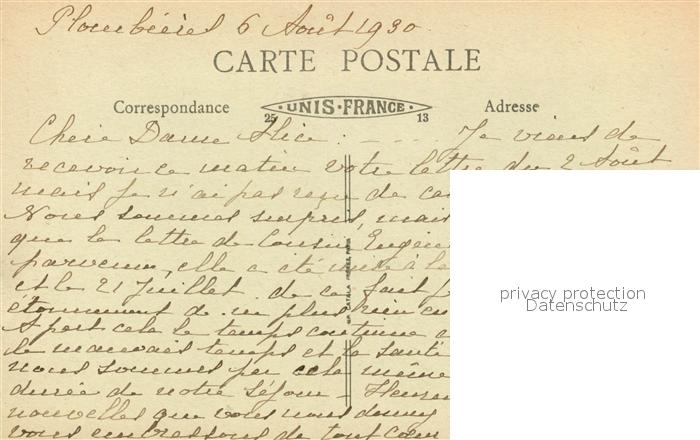 Plombières 6 Août 1930
CARTE POSTALE
Correspondance
UNIS-FRANCE
25 13
Adresse
Chère Dame Alice : — Je viens de
recevoir ce matin votre lettre du 2 Août
mais je n'ai pas reçu de
Nous sommes surpris, mais
que la lettre de Cousin Eugèn
parvenue, elle a été mise à la
et le 21 Juillet de ce fait
étonnement de plus rien
A part cela le temps continue
le mauvais temps et la santé
nous sommes par cela même
durée de notre séjour - Heureu
nouvelles que vous nous donnez
vous embrassons de tout cœur
privacy protection
Datenschutz